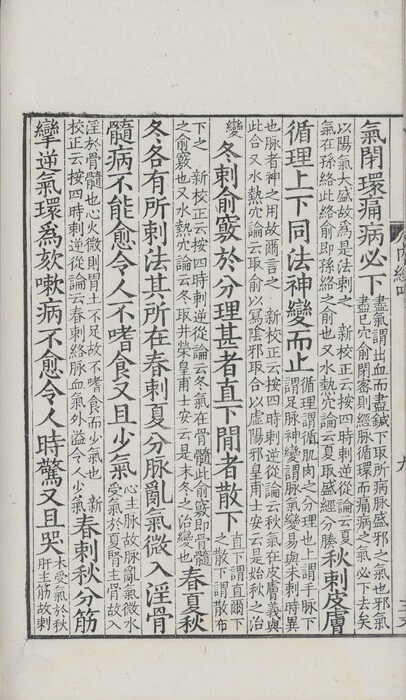 氣閉環痛病必下
盡氣謂出血而盡鍼下取所病脉盛邪之氣也邪氣
盡已穴俞閉密則經脉循環而痛病之氣必下去矣
以陽氣大盛故為是法刺之 新校正云按四時刺逆從論云夏
氣在孫絡此絡俞即孫絡之俞也又水熱穴論云夏取盛經分腠
秋刺皮膚
循理上下同法神變而止
循理謂循肌肉之分理也上謂手脉下
謂足脉神變謂脉氣變易與未刺時異
也脉者神之用故爾言之 新校正云按四時刺逆從論云秋氣在皮膚義與
此合又水熱穴論云取俞以寫陰邪取合以虛陽邪皇甫士安云是始秋之治
變
冬刺俞竅於分理甚者直下間者散下
直下謂直爾下
之散下謂散布
下之 新校正云按四時刺逆從論云冬氣在骨髓此俞竅即骨髓
之俞竅也又水熱穴論云冬取井滎皇甫士安云是末冬之治變也
春夏秋
冬各有所刺法其所在春刺夏分脉亂氣微入淫骨
髓病不能愈令人不嗜食又且少氣
心主脉故脉亂氣微水
受氣於夏腎主骨故入
淫於骨髓也心火微則胃土不足故不嗜食而少氣也 新
校正云按四時刺逆從論云春刺絡脉血氣外溢令人少氣
春刺秋分筋
攣逆氣環為欬嗽病不愈令人時驚又且哭
木受氣於秋
肝主筋故刺